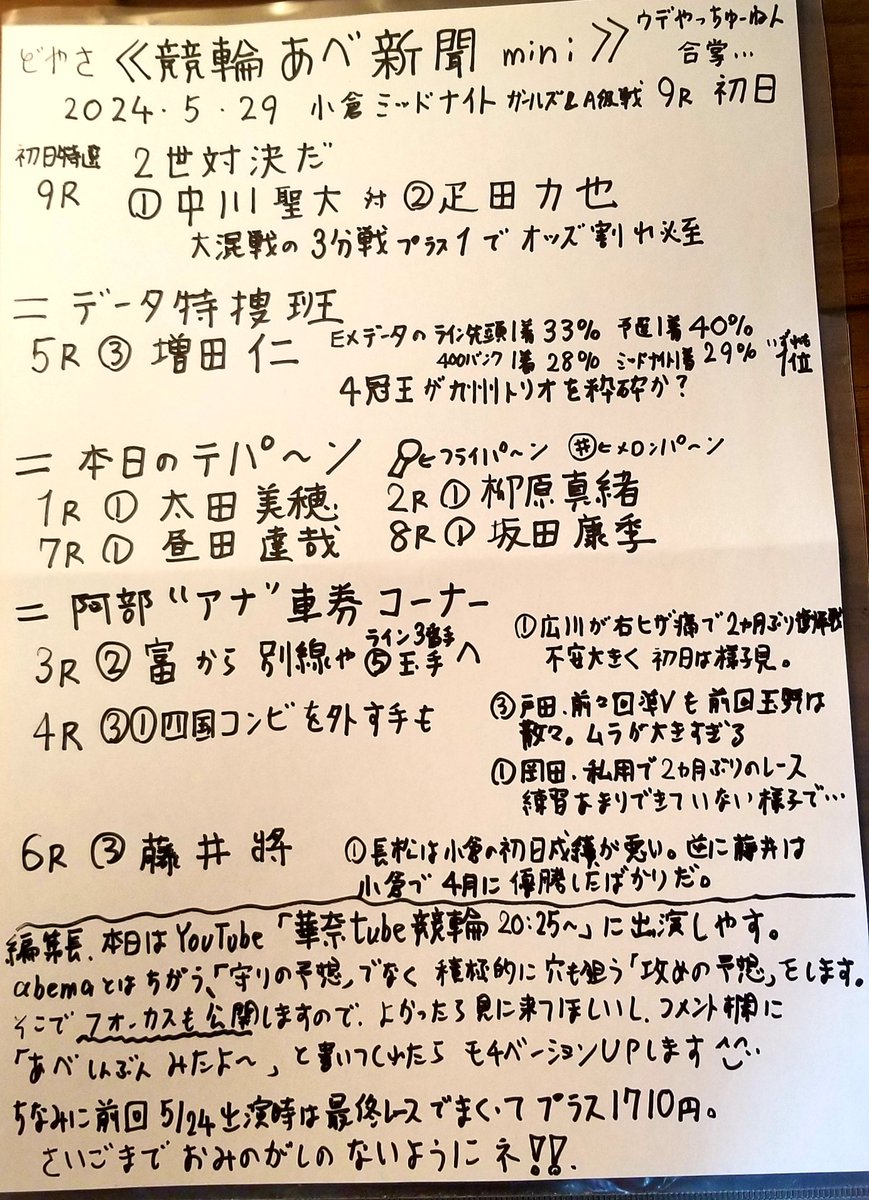 どやさ ≪競輪 あべ 新聞 mini≫ ウデやっちゅーねん
合掌…
2024.5.29 小倉 ミッドナイト ガールズ&A級戦 9R 初日
初日特選 2世対決だ
9R ①中川聖大 対 ②疋田力也
大混戦の3分戦プラス1で オッズ割れ必至
= データ特捜班
5R ③ 増田 仁 EXデータの ライン先頭1着 33% 予選1着 40%
400バンク1着 28% ミッドナイト1着 29% いずれも1位
4冠王が九州トリオを粋砕か?
= 本日のテパ~ン ヒフライパ~ン #ヒメロンパ~ン
1R ① 太田美穂 2R ① 柳原真緒
7R ① 昼田達哉 8R ① 坂田康季
= 阿部"アナ"車券コーナー
3R ② 富 から 別線や ライン3番手 ⑤玉手へ
①広川が右ヒザ痛で2ヵ月ぶり
不安大きく 初日は様子見。
4R ③①四国コンビを外す手も
③戸田、前々回準Vも前回玉野は
散々。ムラが大きすぎる
①岡田、私用で2ヵ月ぶりのレース
練習あまりできていない様子で…
6R ③ 藤井 將
①長松は小倉の初日成績が悪い。逆に藤井は
小倉で4月に優勝したばかりだ。
編集長、本日はYouTube「華奈tube競輪20:25~」に出演しやす。
abemaとはちがう、「守りの予想」でなく 積極的に穴も狙う「攻めの予想」をします。
そこで フォーカスも公開しますので、よかったら見に来てほしいし、コメント欄に
「あべしんぶん みたよ~」と書いてくれたら モチベーションUPします^^..
ちなみに前回 5/24出演時は最終レースでまくってプラス1710円。
さいごまで おみのがしの ないように ネ!!.